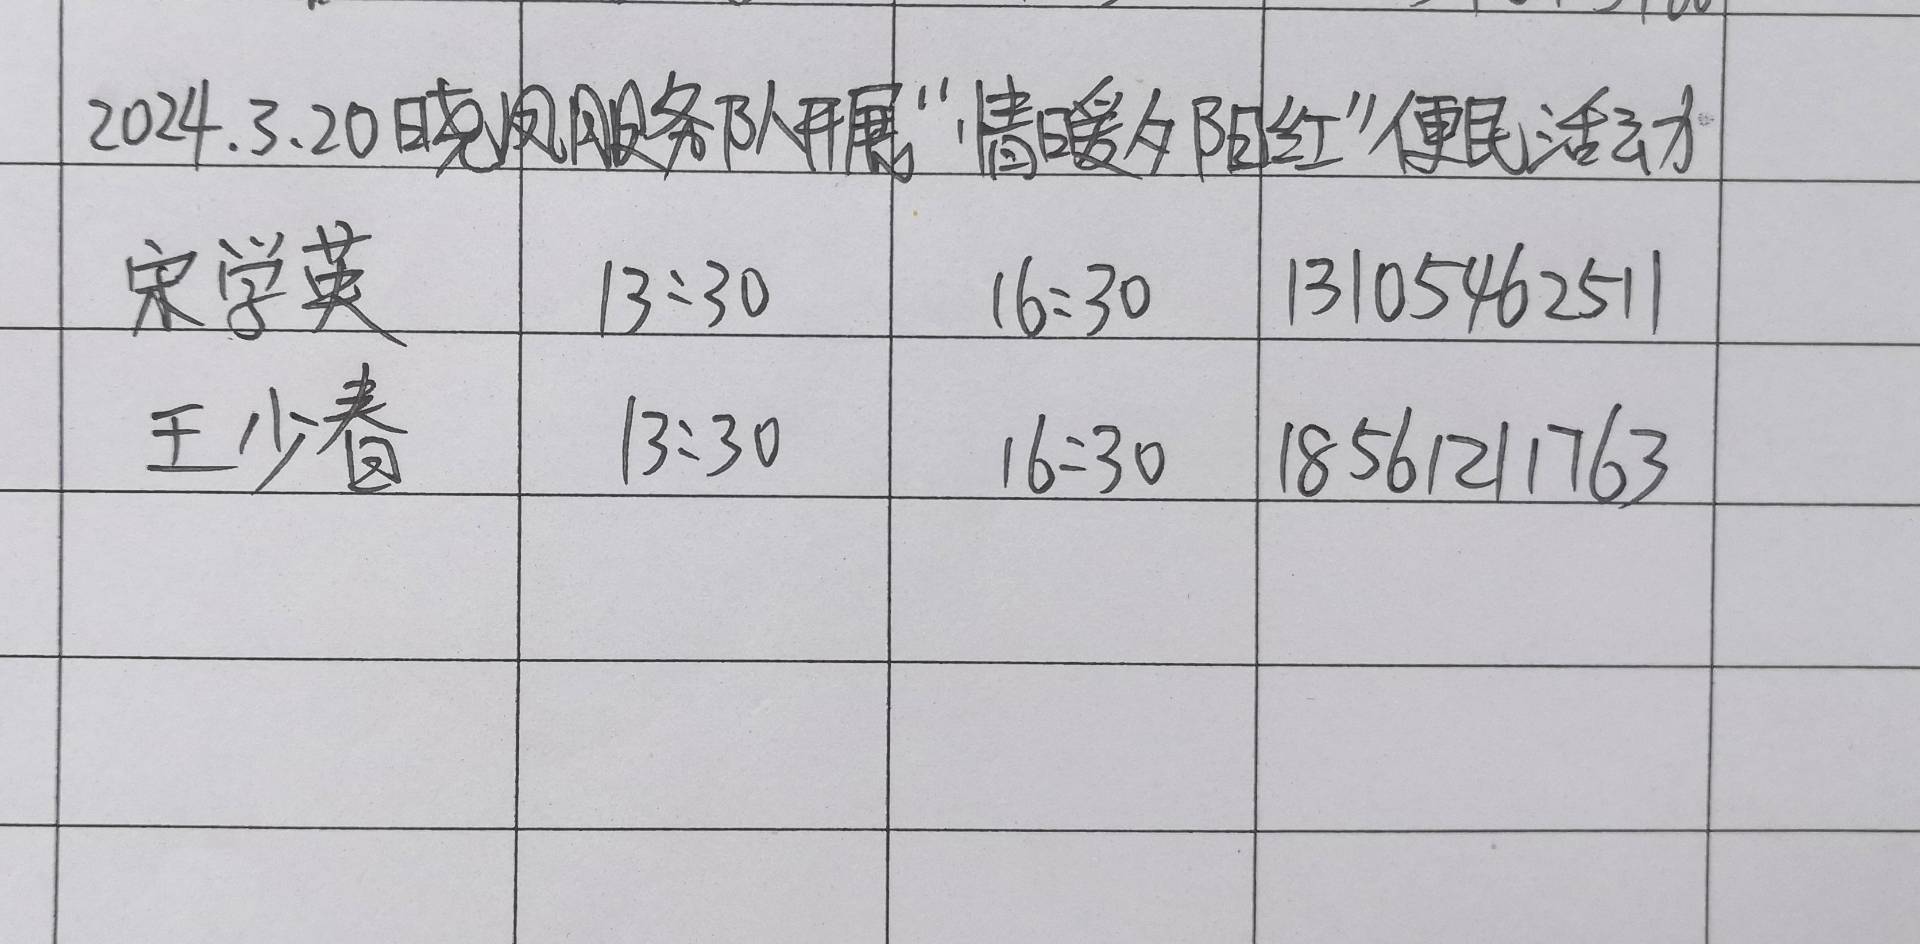 2024.3.20晓凤服务队开展“情暖夕阳红”便民活动
宋学英 13:30 16:30 13105462511
王少春 13:30 16:30 18561211763